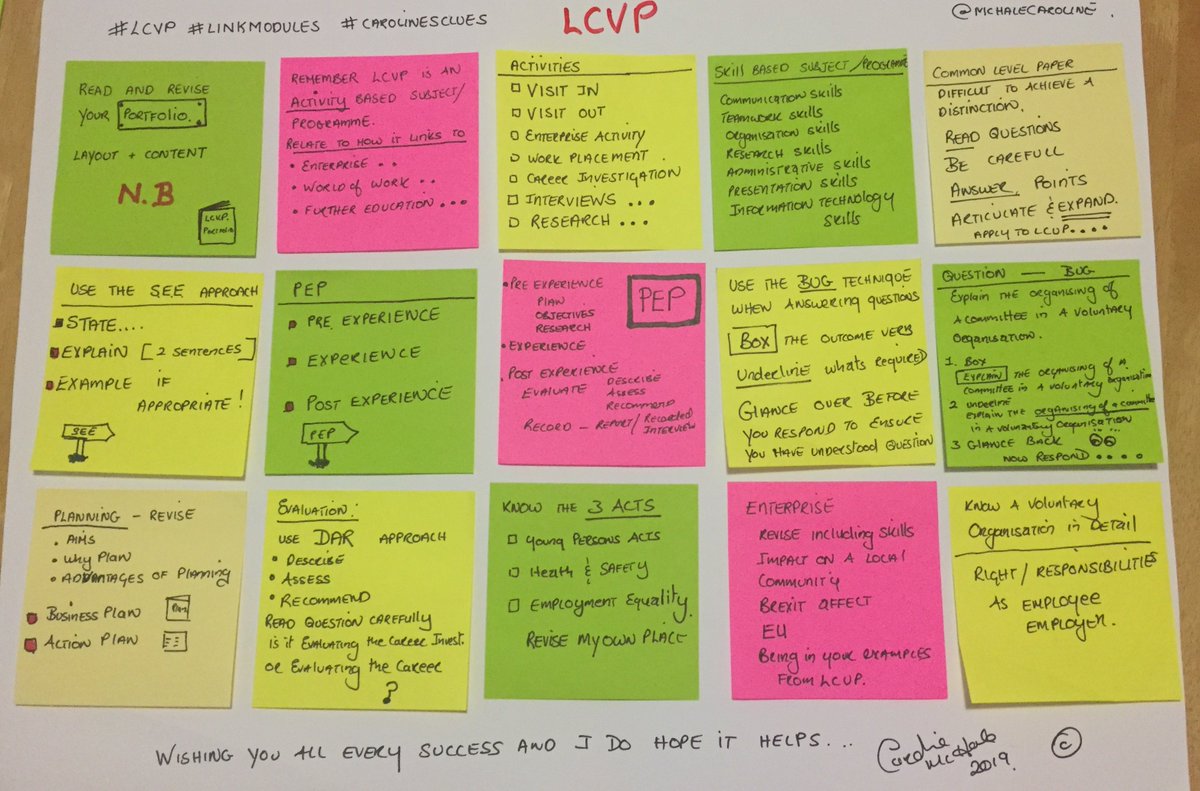 #LCVP #LINKMODULES #CAROLINESCLUES
LCVP
@MCHALECAROLINE.
READ AND REVISE
YOUR PORTFOLIO.
LAYOUT + CONTENT
N.B
LCVP.
PORTFOLIO
REMEMBER LCVP IS AN
ACTIVITY BASED SUBJECT/
PROGRAMME.
RELATE TO HOW IT LINKS TO
• ENTERPRISE . .
• WORLD OF WORK . .
• FURTHER EDUCATION ...
ACTIVITIES
VISIT IN
VISIT OUT
ENTERPRISE ACTIVITY
WORK PLACEMENT.
CAREER INVESTIGATION
INTERVIEWS ...
RESEARCH ...
SKILL BASED SUBJECT/PROGRAMME
COMMUNICATION SKILLS
TEAMWORK SKILLS
ORGANISATION SKILLS
RESEARCH SKILLS
ADMINISTRATIVE SKILLS
PRESENTATION SKILLS
INFORMATION TECHNOLOGY
SKILLS
COMMON LEVEL PAPER
DIFFICULT TO ACHIEVE A
DISTINCTION.
READ QUESTIONS
BE CAREFULL
ANSWER POINTS
ARTICULATE & EXPAND.
APPLY TO LCVP....
USE THE SEE APPROACH
STATE....
EXPLAIN [2 SENTENCES]
EXAMPLE IF
APPROPRIATE!
SEE
PEP
PRE EXPERIENCE
EXPERIENCE
POST EXPERIENCE
PEP
• PRE EXPERIENCE
PLAN
OBJECTIVES
RESEARCH
PEP
• EXPERIENCE
• POST EXPERIENCE
EVALUATE DESCRIBE
ASSESS
RECOMMEND
RECORD – REPORT/RECORDED
INTERVIEW
USE THE BUG TECHNIQUE
WHEN ANSWERING QUESTIONS
BOX THE OUTCOME VERB
UNDERLINE WHATS REQUIRED
GLANCE OVER BEFORE
YOU RESPOND TO ENSURE
YOU HAVE UNDERSTOOD QUESTION
QUESTION — BUG
EXPLAIN THE ORGANISING OF
A COMMITTEE IN A VOLUNTARY
ORGANISATION.
1. BOX
EXPLAIN THE ORGANISING OF A
COMMITTEE IN A VOLUNTARY ORGANISATION
2 UNDERLINE
EXPLAIN THE ORGANISING OF A COMMITTEE
IN A VOLUNTARY ORGANISATION
3 GLANCE BACK
NOW RESPOND ....
PLANNING – REVISE
• AIMS
• WHY PLAN
• ADVANTAGES OF PLANNING
BUSINESS PLAN
ACTION PLAN
EVALUATION:
USE DAR APPROACH
• DESCRIBE
• ASSESS
• RECOMMEND
READ QUESTION CAREFULLY
IS IT EVALUATING THE CAREER INVEST.
OR EVALUATING THE CAREER
?
KNOW THE 3 ACTS
YOUNG PERSONS ACTS
HEALTH & SAFETY
EMPLOYMENT EQUALITY.
REVISE MY OWN PLACE
ENTERPRISE
REVISE INCLUDING SKILLS
IMPACT ON A LOCAL
COMMUNITY
BREXIT AFFECT
EU
BEING IN YOUR EXAMPLES
FROM LCVP.
KNOW A VOLUNTARY
ORGANISATION IN DETAIL
RIGHT/RESPONSIBILITIES
AS EMPLOYEE
EMPLOYER.
WISHING YOU ALL EVERY SUCCESS AND I DO HOPE IT HELPS...
Caroline
McHale
2019.
©